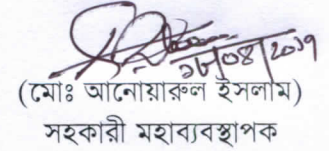 ১৮/০৪/২০১৭
(মোঃ আনোয়ারুল ইসলাম)
সহকারী মহাব্যবস্থাপক